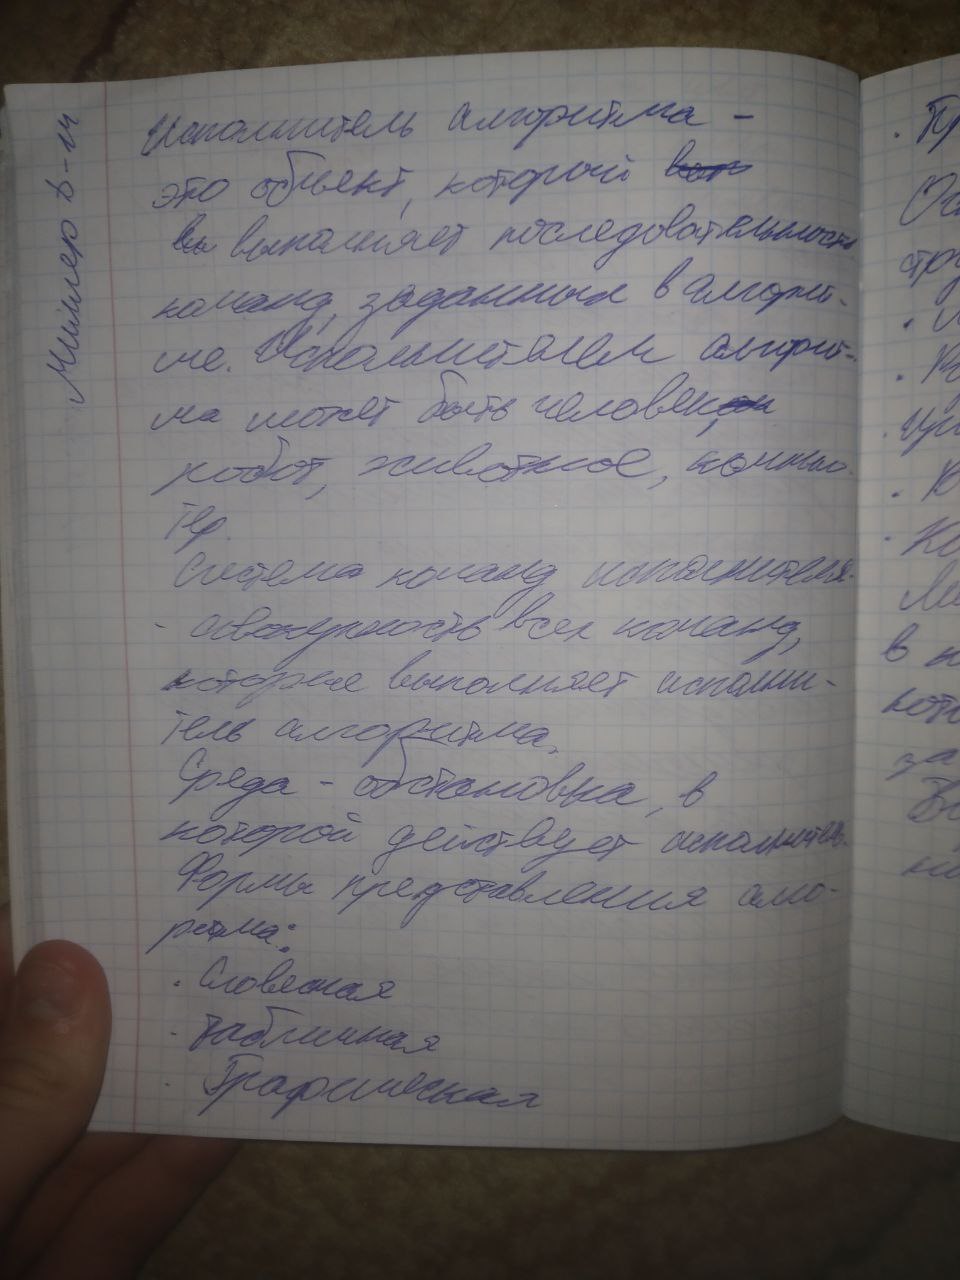 Миллер D-14
Исполнитель алгоритма -
это объект, который
вы выполняет последовательность
команд, заданных в алгорит-
ме. Исполнителем алгорит-
ма может быть человек,
робот, животное, компью-
тер.
Система команд исполнителя-
- совокупность всех команд,
которые выполняет исполни-
тель алгоритма.
Среда - обстановка, в
которой действует исполнитель.
Формы представления алго-
ритма:
· Словесная
· Табличная
· Графическая
· Пр
в
за